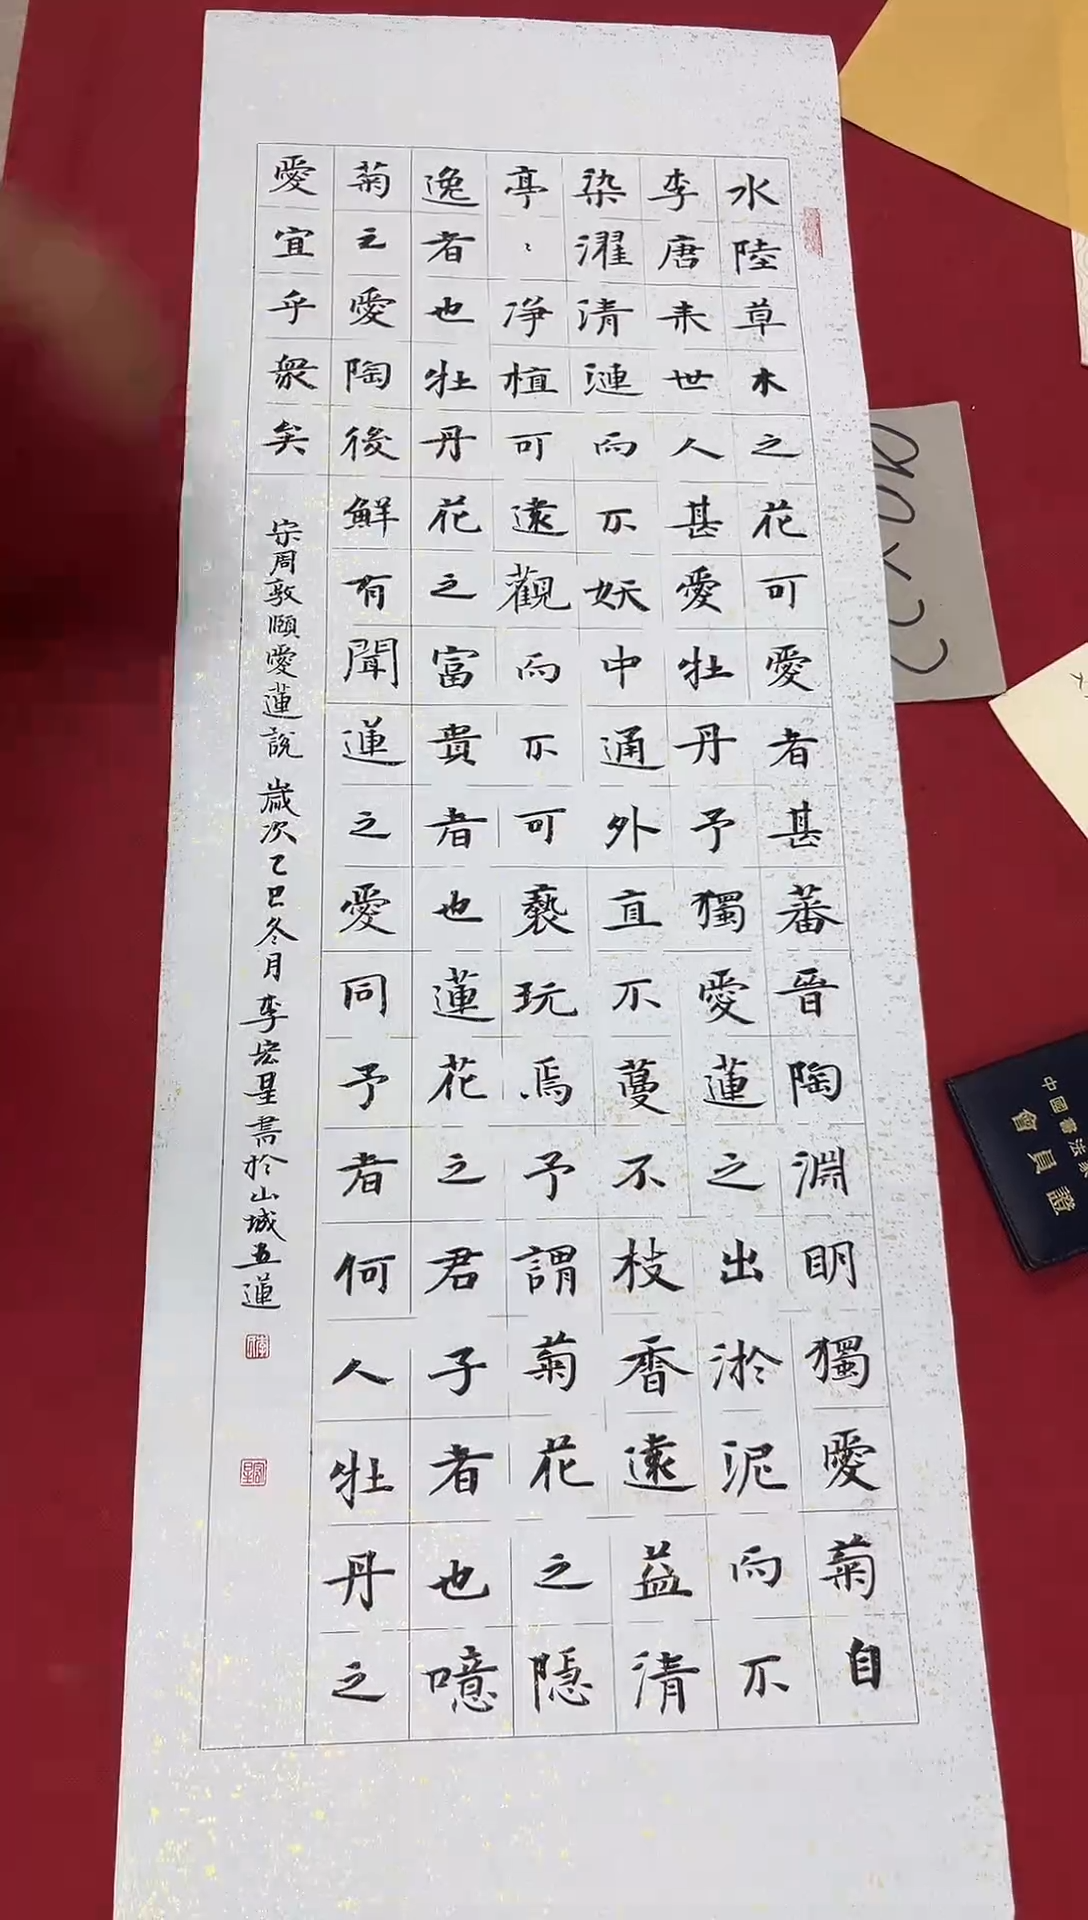 水陸草木之花可愛者甚蕃晉陶淵明獨愛菊自
李唐来世人甚愛牡丹予獨愛蓮之出淤泥而不
染濯清漣而不妖中通外直不蔓不枝香遠益清
亭〻净植可遠觀而不可褻玩焉予謂菊花之隠
逸者也牡丹花之富貴者也蓮花之君子者也噫
菊之愛陶後鮮有聞蓮之愛同予者何人牡丹之
愛宜乎衆矣
宋周敦頤愛蓮說 歲次乙巳冬月李宏星書於山城五蓮
中國書法家
會員證